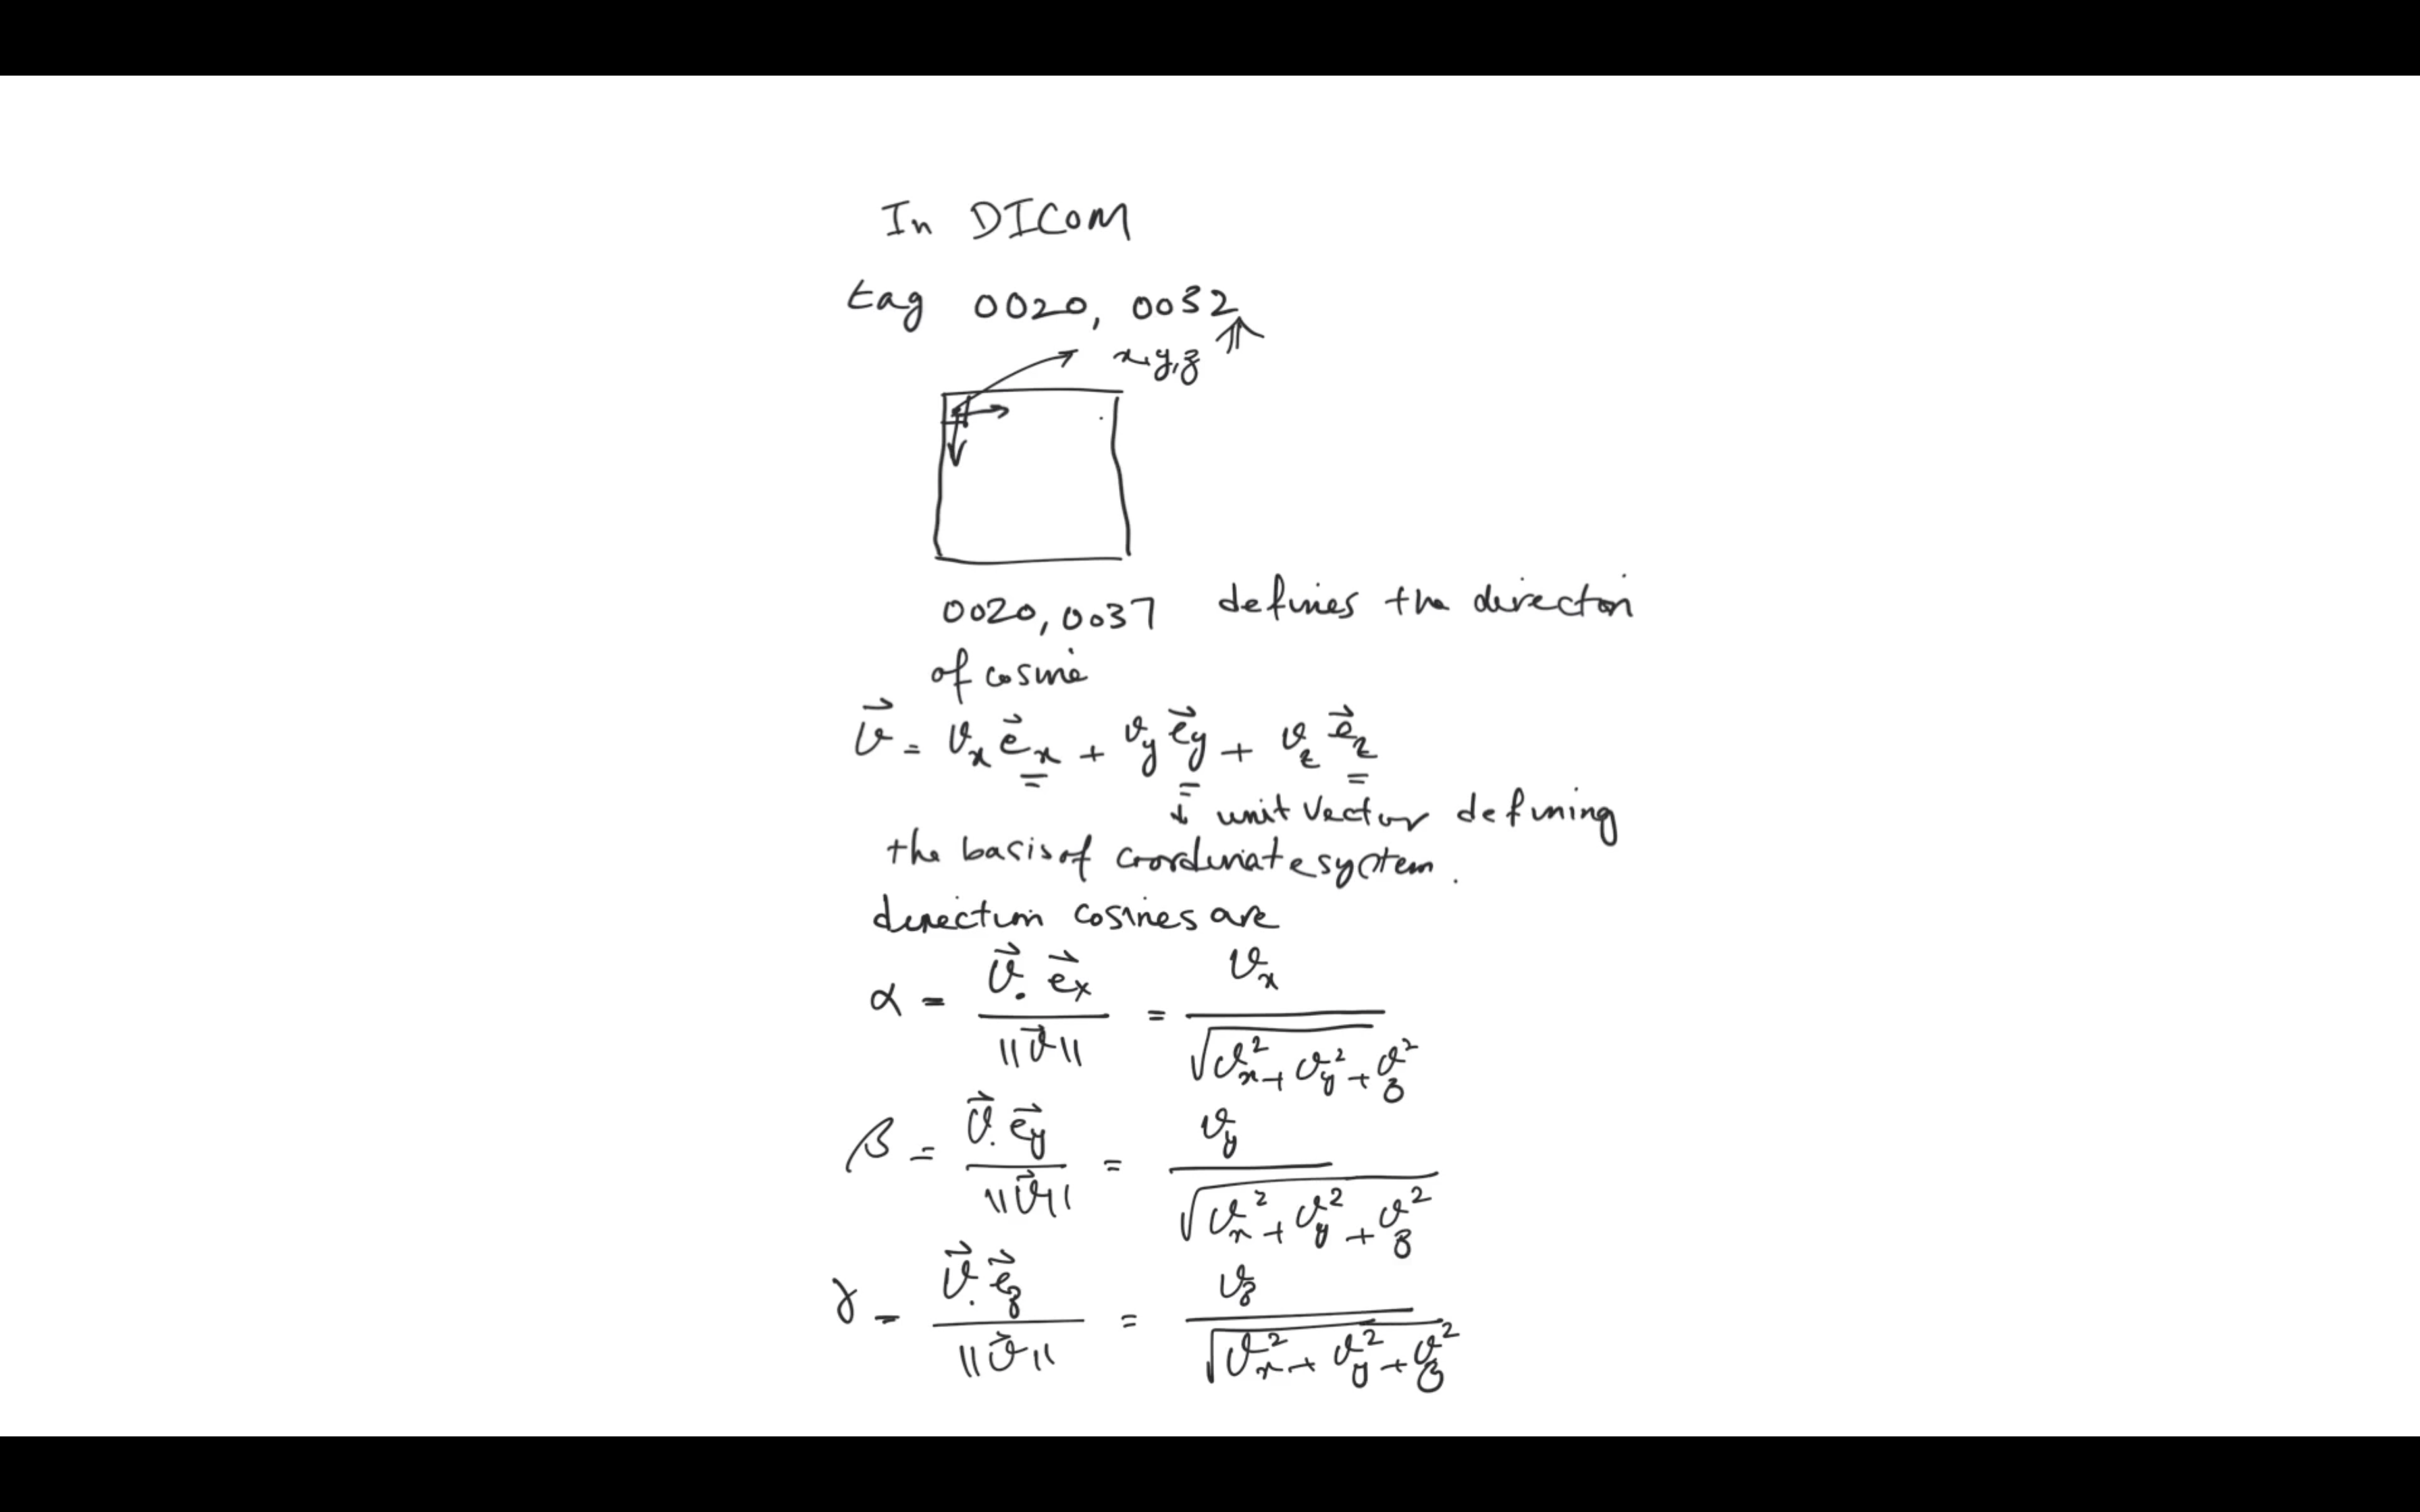 In DICOM
tag 0020, 0032
x,y,z
0020,0037 defines the direction
of cosine
v⃗ = vₓ e⃗ₓ + v_y e⃗_y + v_z e⃗_z
↓ unit vector defining
the basis of coordinate system.
direction cosines are
α = v⃗ . e⃗ₓ / ||v⃗|| = vₓ / √(vₓ² + v_y² + v_z²)
β = v⃗ . e⃗_y / ||v⃗|| = v_y / √(vₓ² + v_y² + v_z²)
γ = v⃗ . e⃗_z / ||v⃗|| = v_z / √(vₓ² + v_y² + v_z²)